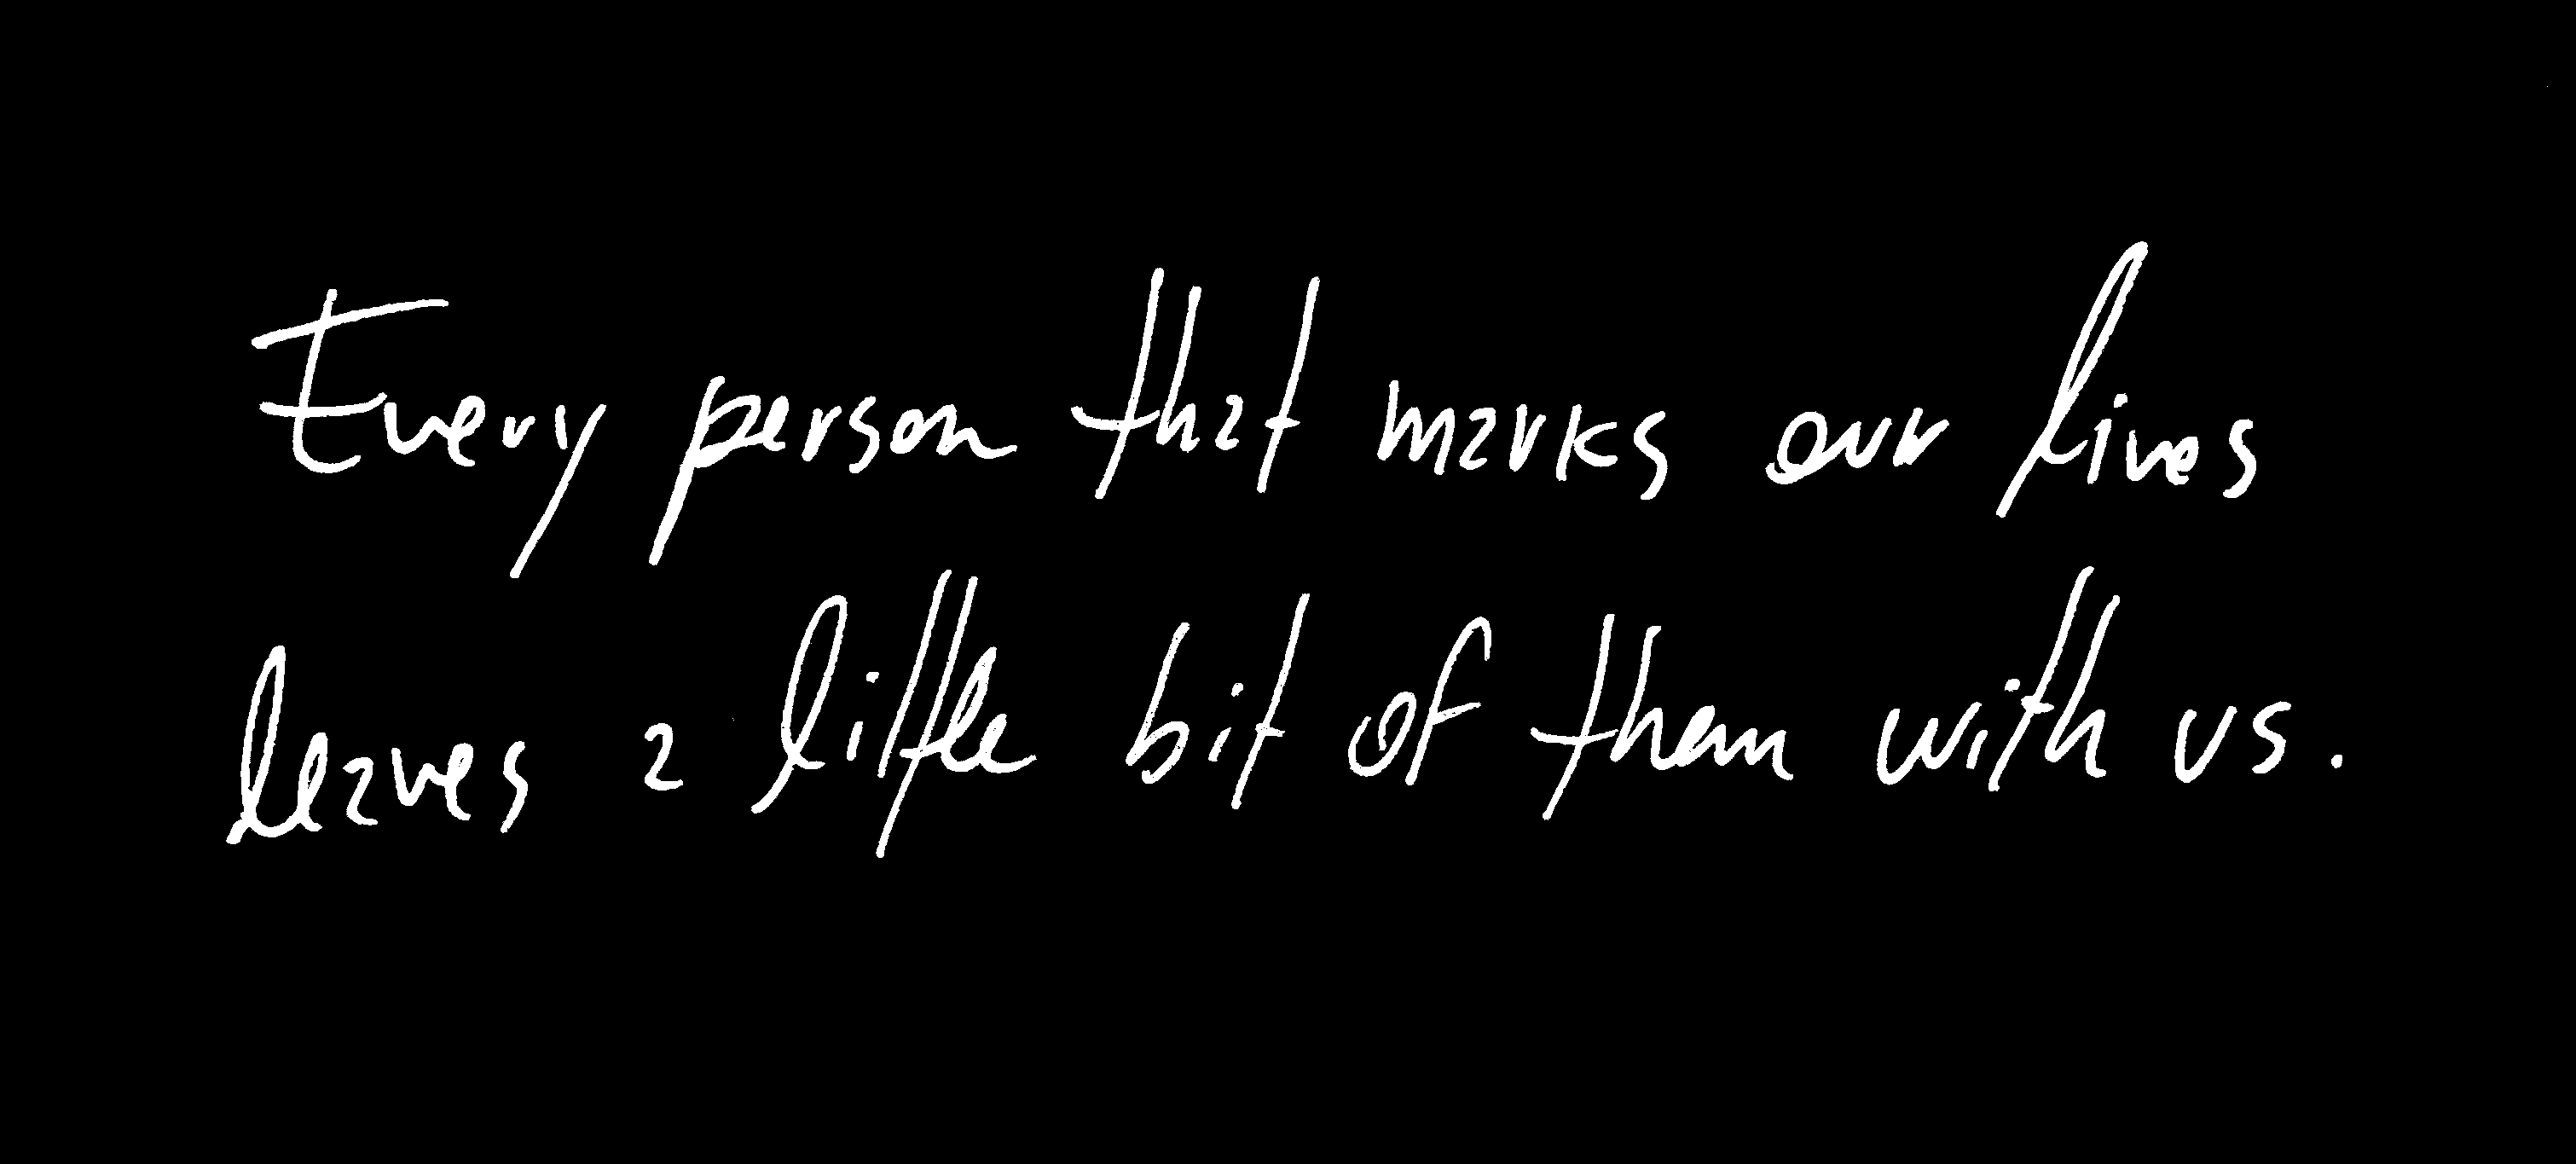 Every person that marks our lives
leaves a little bit of them with us.